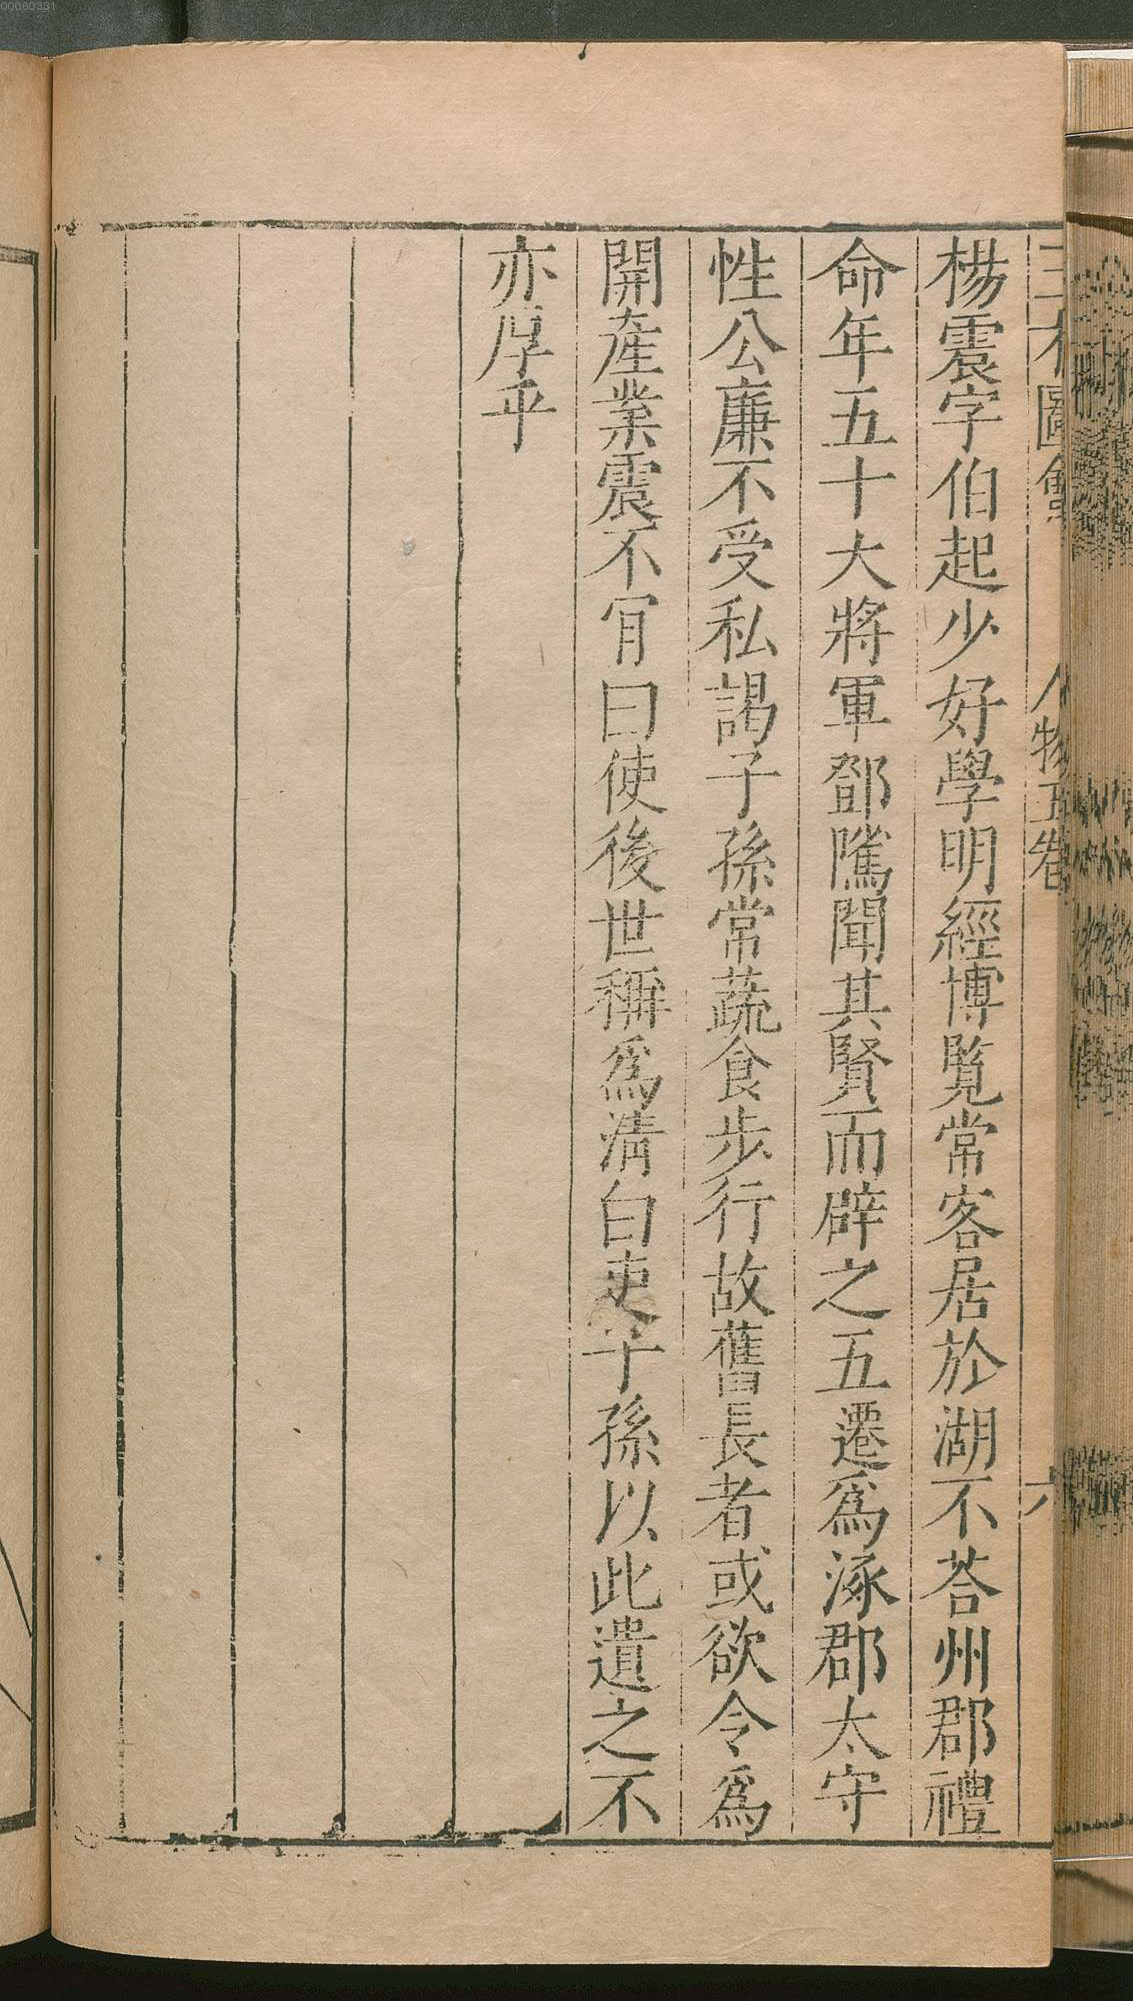 00060331
三才圖會 人物五卷 六
楊震字伯起少好學明經博覧常客居於湖不荅州郡禮
命年五十大將軍鄧隲聞其賢而辟之五遷爲涿郡太守
性公廉不受私謁子孫常蔬食步行故舊長者或欲令爲
開產業震不肎曰使後世稱爲清白吏子孫以此遺之不
亦厚乎